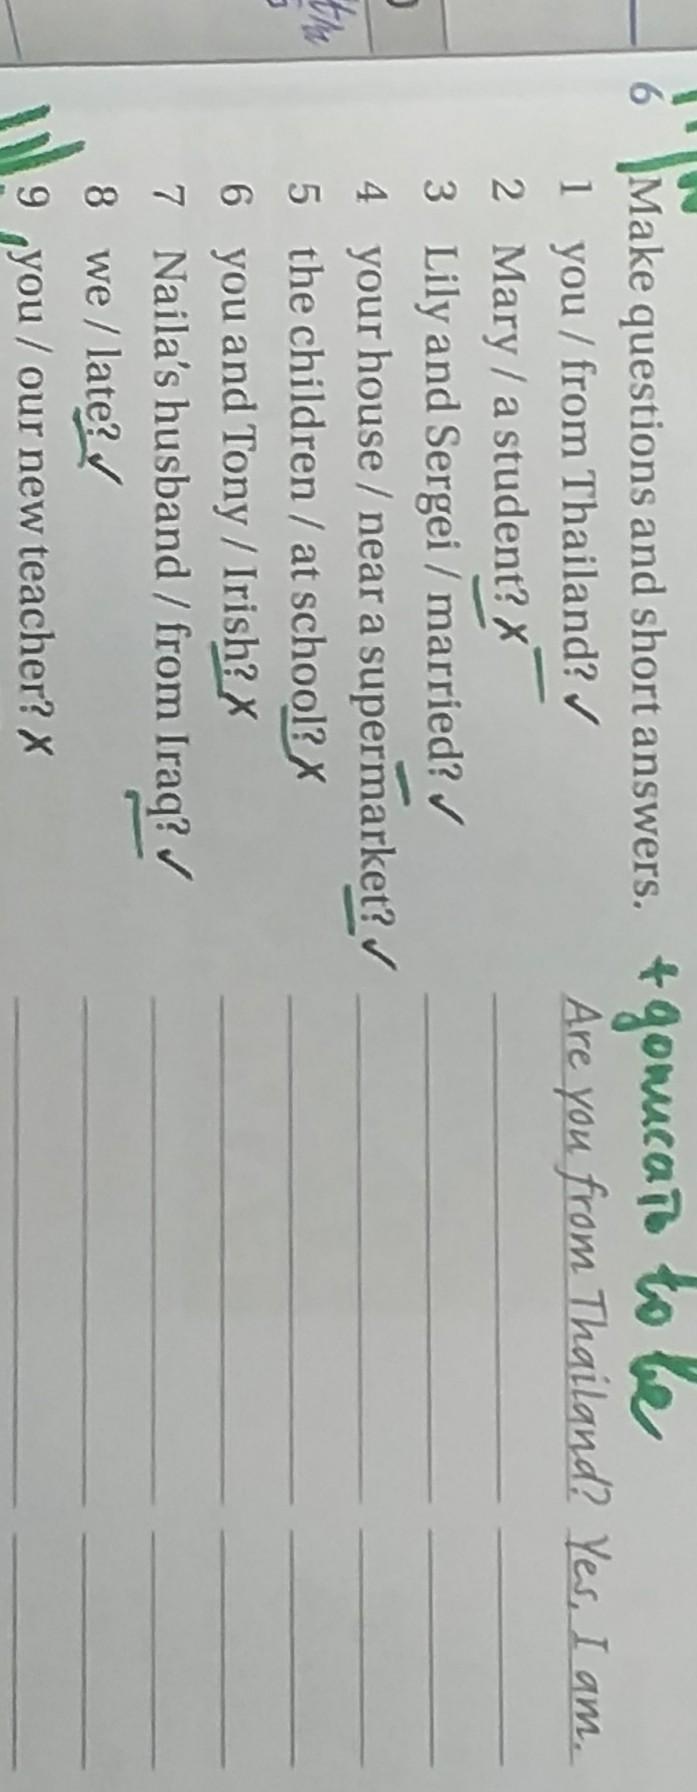 6 Make questions and short answers. + дописать to be
1 you / from Thailand? ✓ Are you from Thailand? Yes, I am.
2 Mary / a student? ✗
3 Lily and Sergei / married? ✓
4 your house / near a supermarket? ✓
5 the children / at school? ✗
6 you and Tony / Irish? ✗
7 Naila's husband / from Iraq? ✓
8 we / late? ✓
9 you / our new teacher? ✗